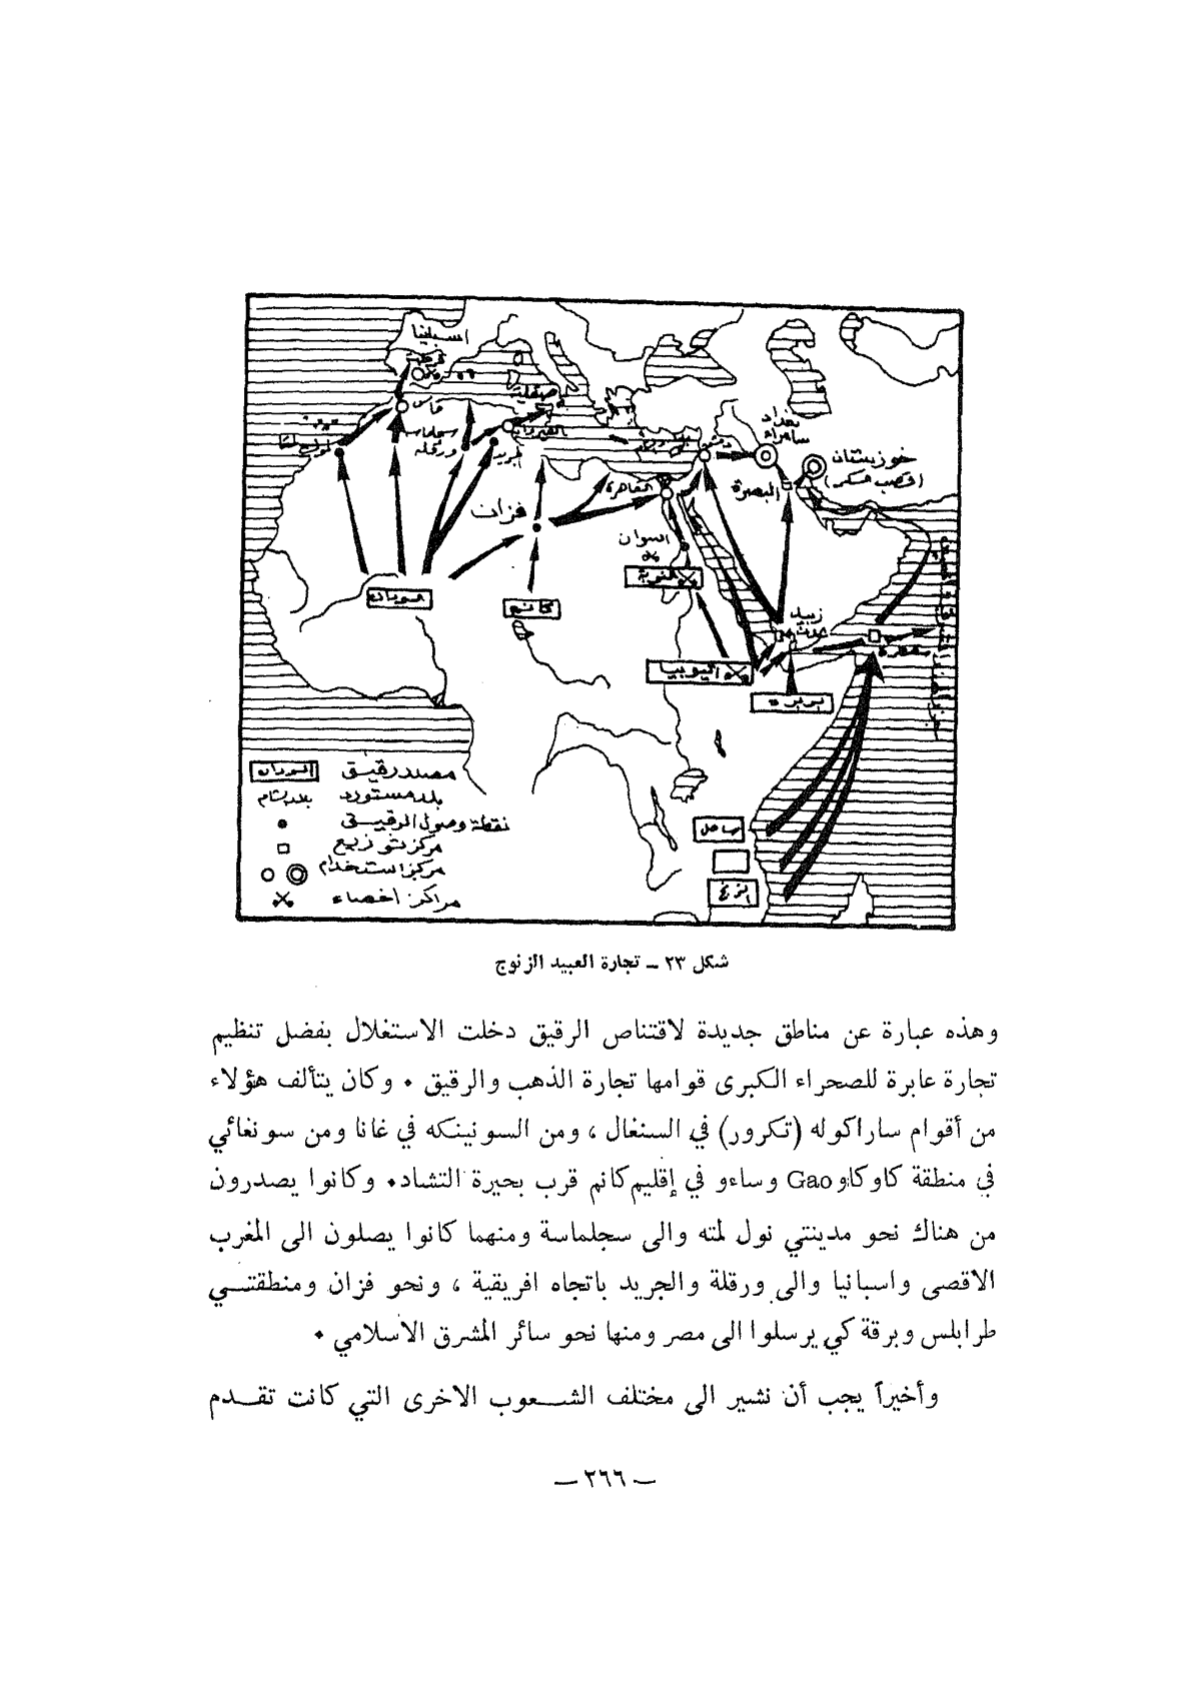 اسبانيا
قرطبة
فاس
سجلماسة
ورقلة
صقلية
القيروان
الجريد
فزان
القاهرة
دمشق
بغداد
سامراء
خوزستان
(قصب سكر)
البصرة
اسوان
النوبة
السودان
كانم
زبيد
اثيوبيا
بربره
سقطرة
ساحل
الزنج
السودان مصدر رقيق
بلاد الشام بلد مستورد
نقطة وصول الرقيق
مركز توزيع
مركز استخدام
مراكز اخصاء
شكل ٢٣ ــ تجارة العبيد الزنوج
وهذه عبارة عن مناطق جديدة لاقتناص الرقيق دخلت الاستغلال بفضل تنظيم
تجارة عابرة للصحراء الكبرى قوامها تجارة الذهب والرقيق • وكان يتألف هؤلاء
من أقوام ساراكوله (تكرور) في السنغال ، ومن السونينكه في غانا ومن سونغائي
في منطقة كاوكاو Gao وساءو في إقليم كانم قرب بحيرة التشاد• وكانوا يصدرون
من هناك نحو مدينتي نول لمته والى سجلماسة ومنهما كانوا يصلون الى المغرب
الاقصى واسبانيا والى ورقلة والجريد باتجاه افريقية ، ونحو فزان ومنطقتــي
طرابلس وبرقة كي يرسلوا الى مصر ومنها نحو سائر المشرق الاسلامي •
وأخيراً يجب أن نشير الى مختلف الشــعوب الاخرى التي كانت تقــدم
ــ ٢٦٦ ــ